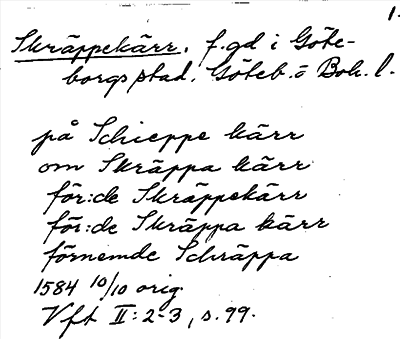 1.
Skräppekärr. f.gd i Göte-
borgs stad. Göteb. o Boh. l.
på Schieppe kärr
om Skräppa kärr
för:de Skräppekärr
för:de Skräppa kärr
förnemde Schräppa
1584 10/10 orig.
Vft II: 2-3, s. 99.